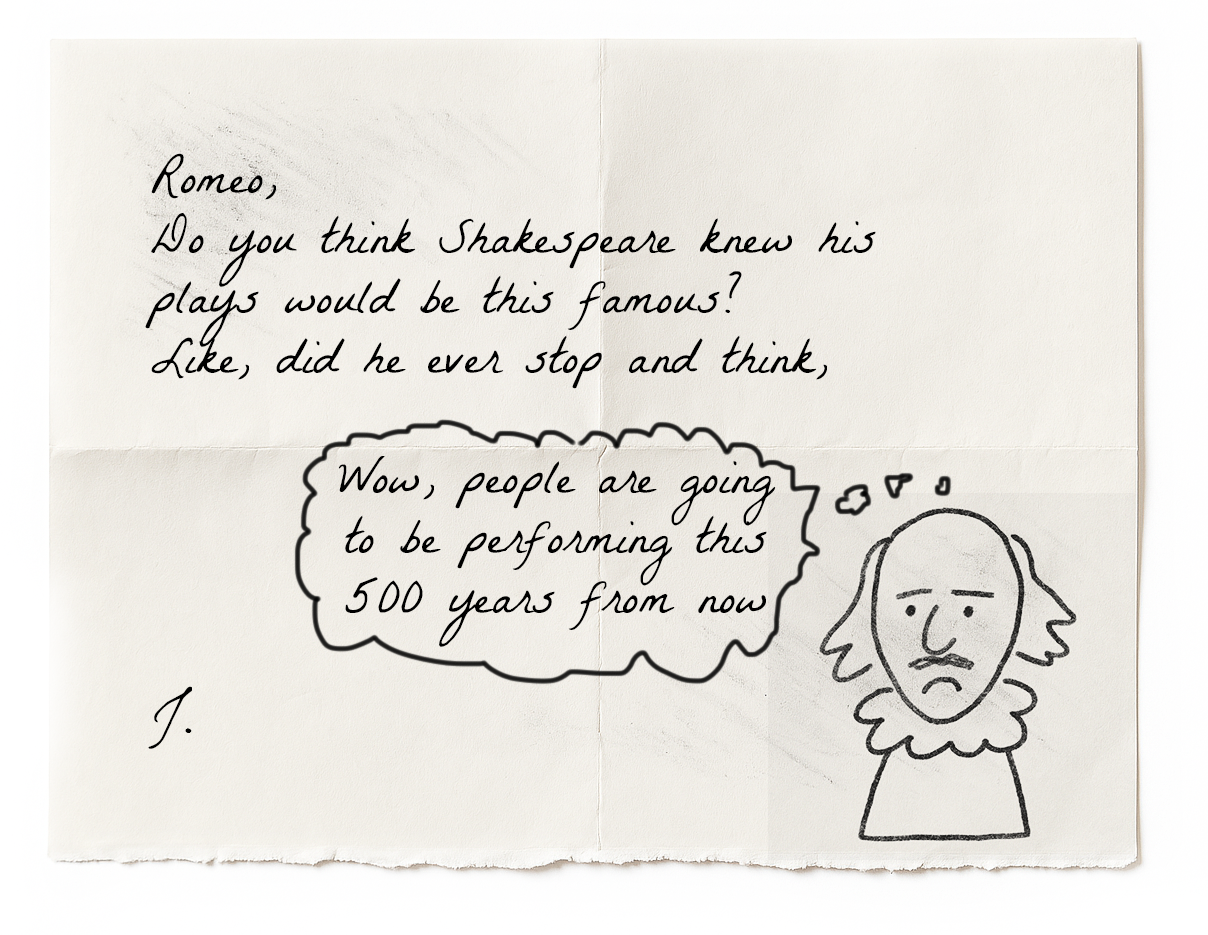 Romeo,
Do you think Shakespeare knew his
plays would be this famous?
Like, did he ever stop and think,
Wow, people are going
to be performing this
500 years from now
J.